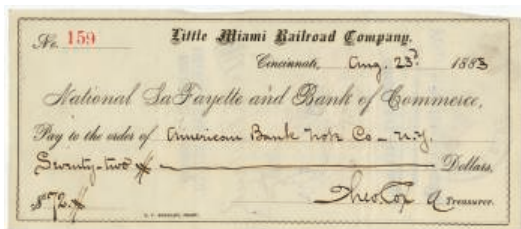 No. 159 Little Miami Railroad Company.
Cincinnati, Aug. 23d 1883
National LaFayette and Bank of Commerce,
Pay to the order of American Bank Note Co - N.Y.
Seventy-two Dollars,
$72. Theo. Cox Treasurer.